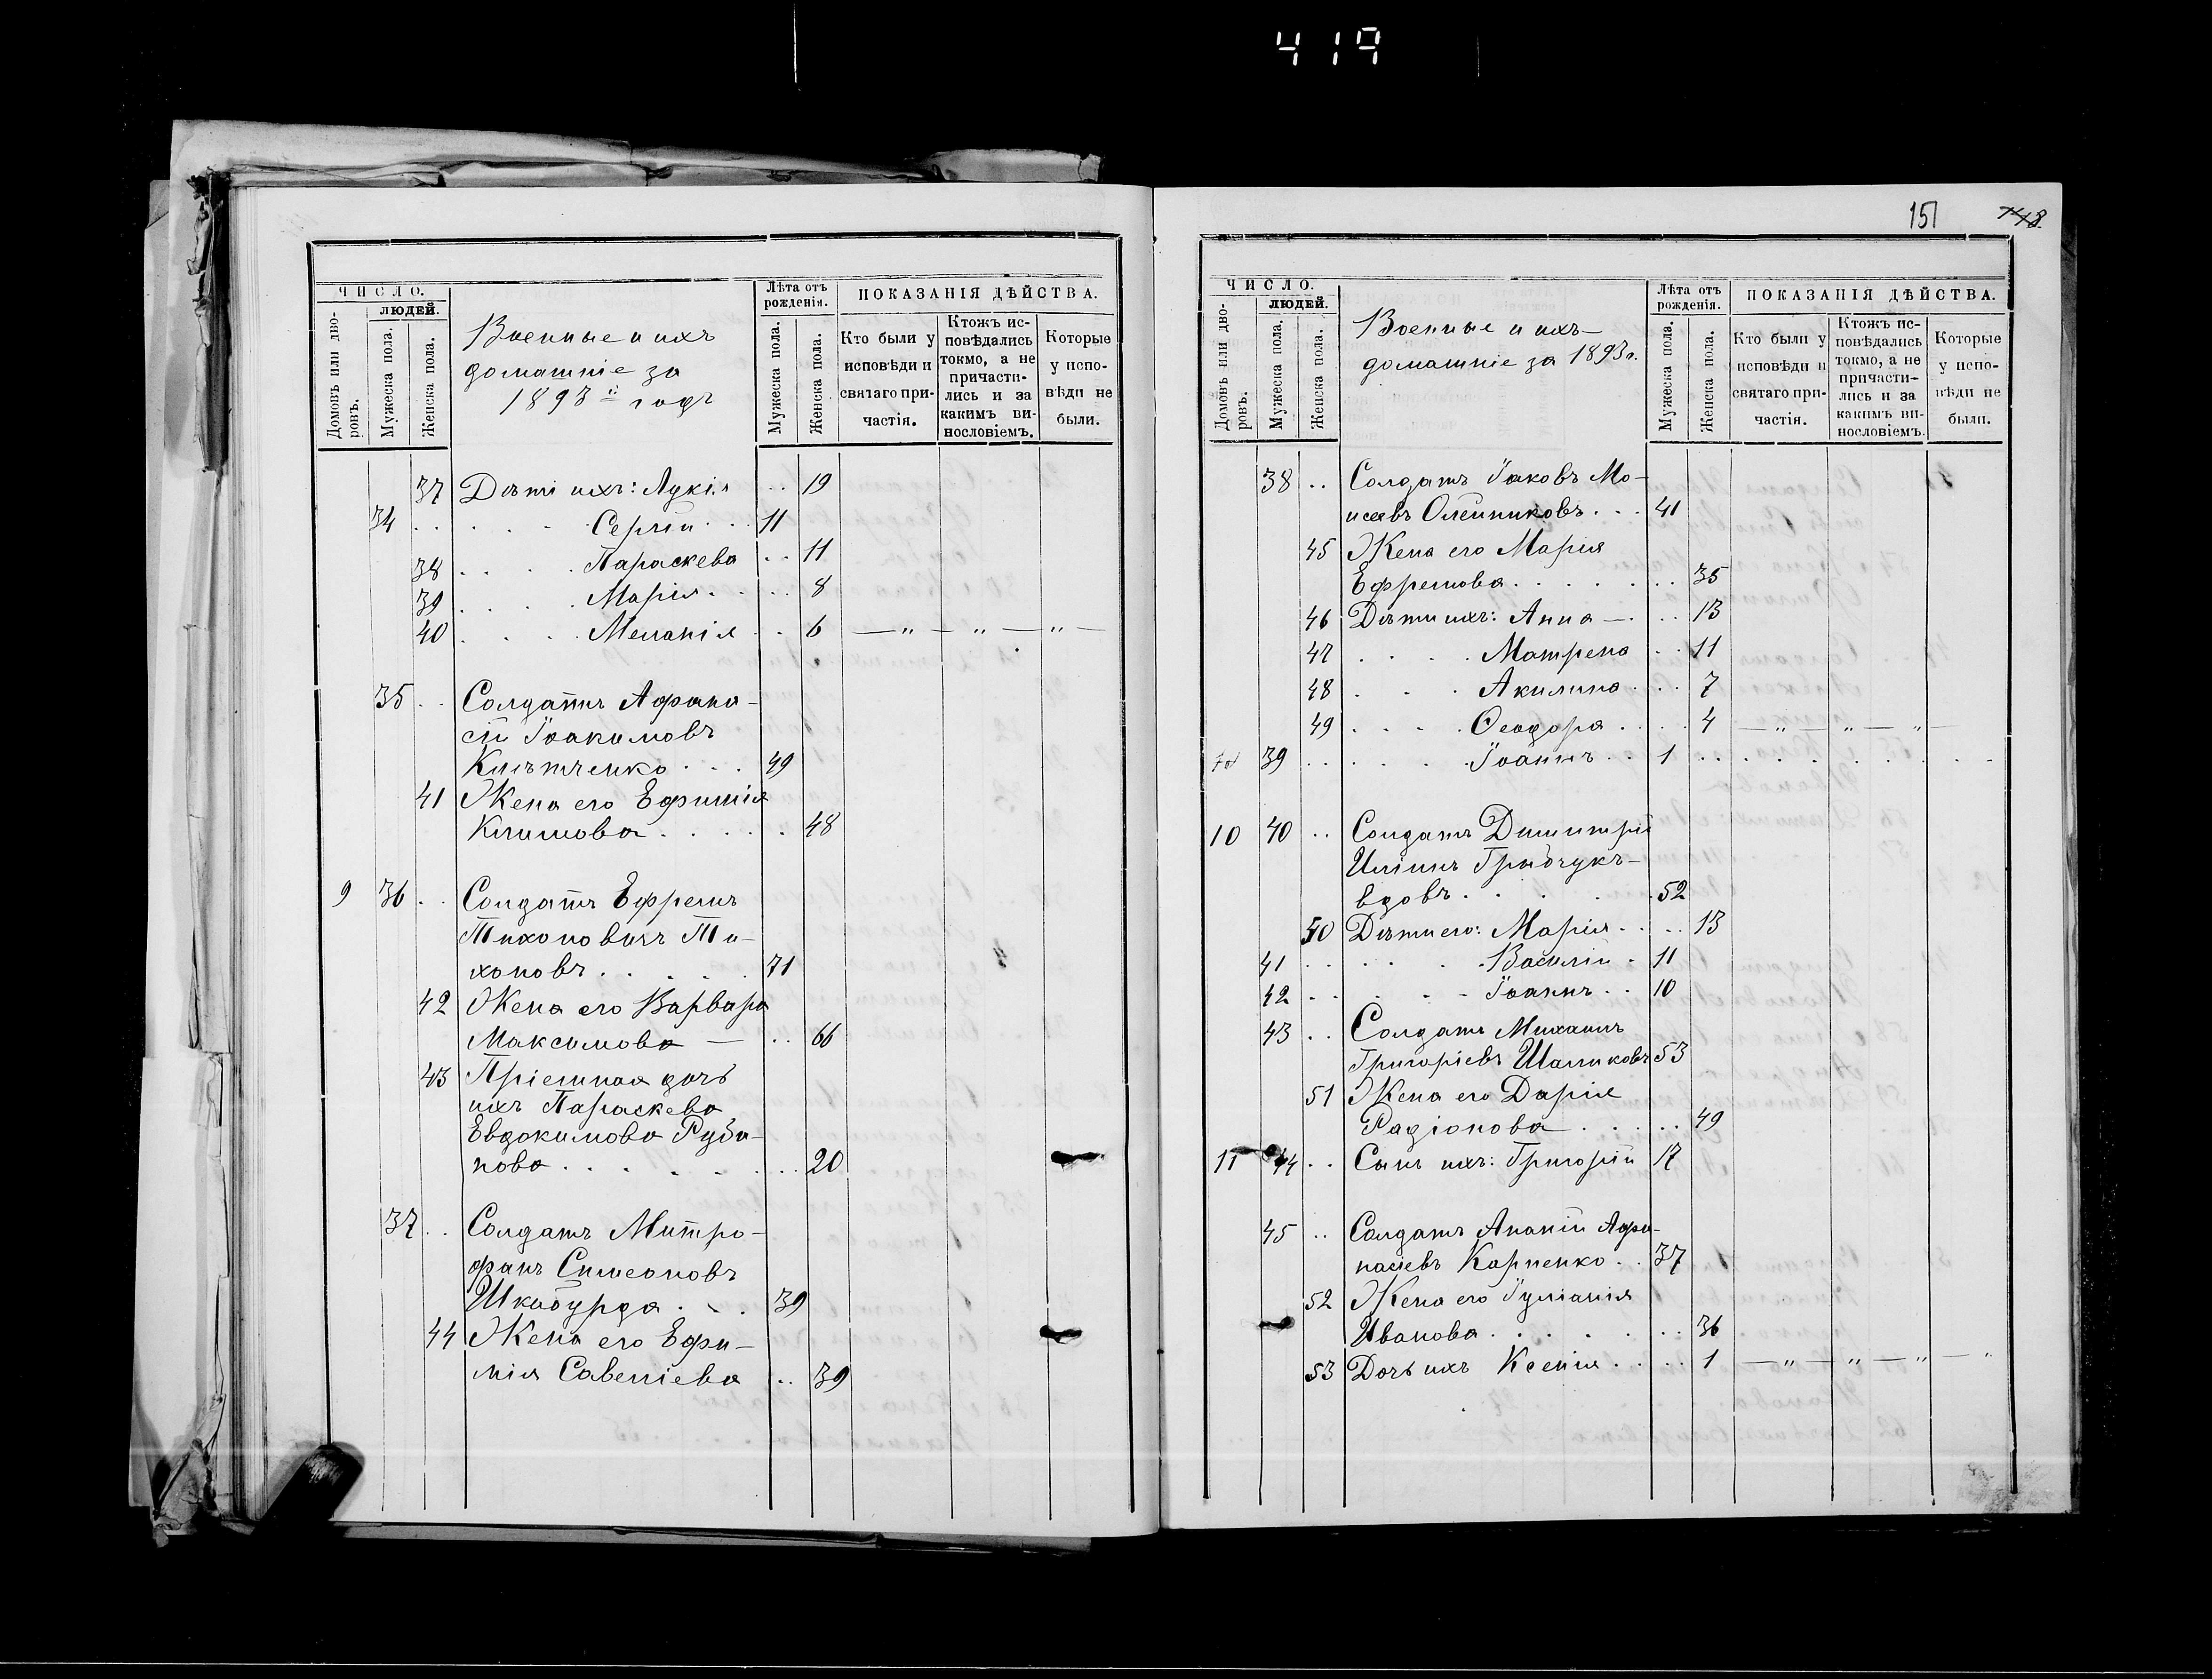 419
ЧИСЛО.
ЛЮДЕЙ.
Домовъ или дво-
ровъ.
Мужеска пола.
Женска пола.
Военные и ихъ
домашніе за
1893 й годъ
Лѣта отъ
рожденія.
Мужеска пола.
Женска пола.
ПОКАЗАНІЯ ДѢЙСТВА.
Кто были у
исповѣди и
святаго при-
частія.
Ктожъ ис-
повѣдались
токмо, а не
причасти-
лись и за
какимъ ви-
нословіемъ.
Которые
у испо-
вѣди не
были.
37 Дѣти ихъ: Лукія .. 19
34 . . . . . Сергій . . . 11
38 . . . . Параскева . . 11
39 . . . . Марія . . . . 8
40 . . . . Меланія . . 6 — „ — „ — „ —
35 . . Солдатъ Афана-
сій Іоакимовъ
Кнытченко . . . 49
41 Жена его Ефимія
Климова . . . . . 48
9 36 . . Солдатъ Ефремъ
Тихоновичъ Ти-
хоновъ . . . . . 71
42 Жена его Варвара
Максимова — . . 66
43 Пріемная дочь
ихъ Параскева
Евдокимова Руба-
нова . . . . . . . 20
37 . . Солдатъ Митро-
фанъ Симеоновъ
Шкабурда . . . 39
44 Жена его Ефи-
мія Савеліева . . 39
151 148
ЧИСЛО.
ЛЮДЕЙ.
Домовъ или дво-
ровъ.
Мужеска пола.
Женска пола.
Военные и ихъ
домашніе за 1893 г.
Лѣта отъ
рожденія.
Мужеска пола.
Женска пола.
ПОКАЗАНІЯ ДѢЙСТВА.
Кто были у
исповѣди и
святаго при-
частія.
Ктожъ ис-
повѣдались
токмо, а не
причасти-
лись и за
какимъ ви-
нословіемъ.
Которые
у испо-
вѣди не
были.
38 . . Солдатъ Іаковъ Мо-
исеевъ Олейниковъ . . . 41
45 Жена его Марія
Ефремова . . . . . . 35
46 Дѣти ихъ: Анна — . . . 13
47 . . . . Матрена . . 11
48 . . . Акилина . . . 7
49 . . . . Ѳеодора . . . . 4 — „ — „ — „ —
39 . . . . . Іоаннъ . . 1 . . . . . . . .
10 40 . . Солдатъ Димитрій
Иліинъ Грибчукъ —
вдовъ . . . . . 52
50 Дѣти его: Марія . . . . 13
41 . . . . . Василій . 11
42 . . . . - Іоаннъ . . 10
43 . . Солдатъ Михаилъ
Григоріевъ Шаликовъ 53
51 Жена его Дарія
Радіонова . . . . . 49
11 44 . . Сынъ ихъ: Григорій 17
45 . . Солдатъ Ананій Афа-
насіевъ Карпенко . . 37
52 Жена его Іуліанія
Иванова . . . . . . . 36
53 Дочь ихъ Ксенія . . . . 1 — „ — „ — „ — „